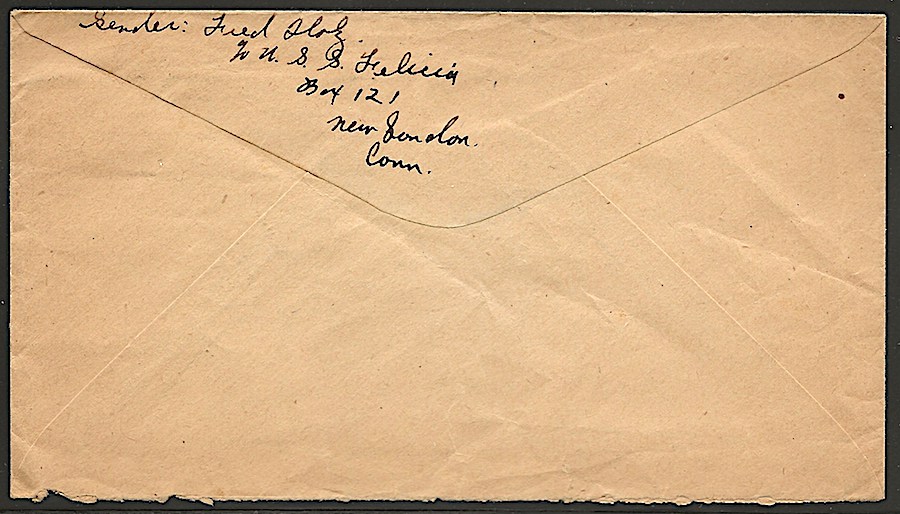 Sender: Fred
℅ U. S. S. Felicia
Box 121
New London.
Conn.